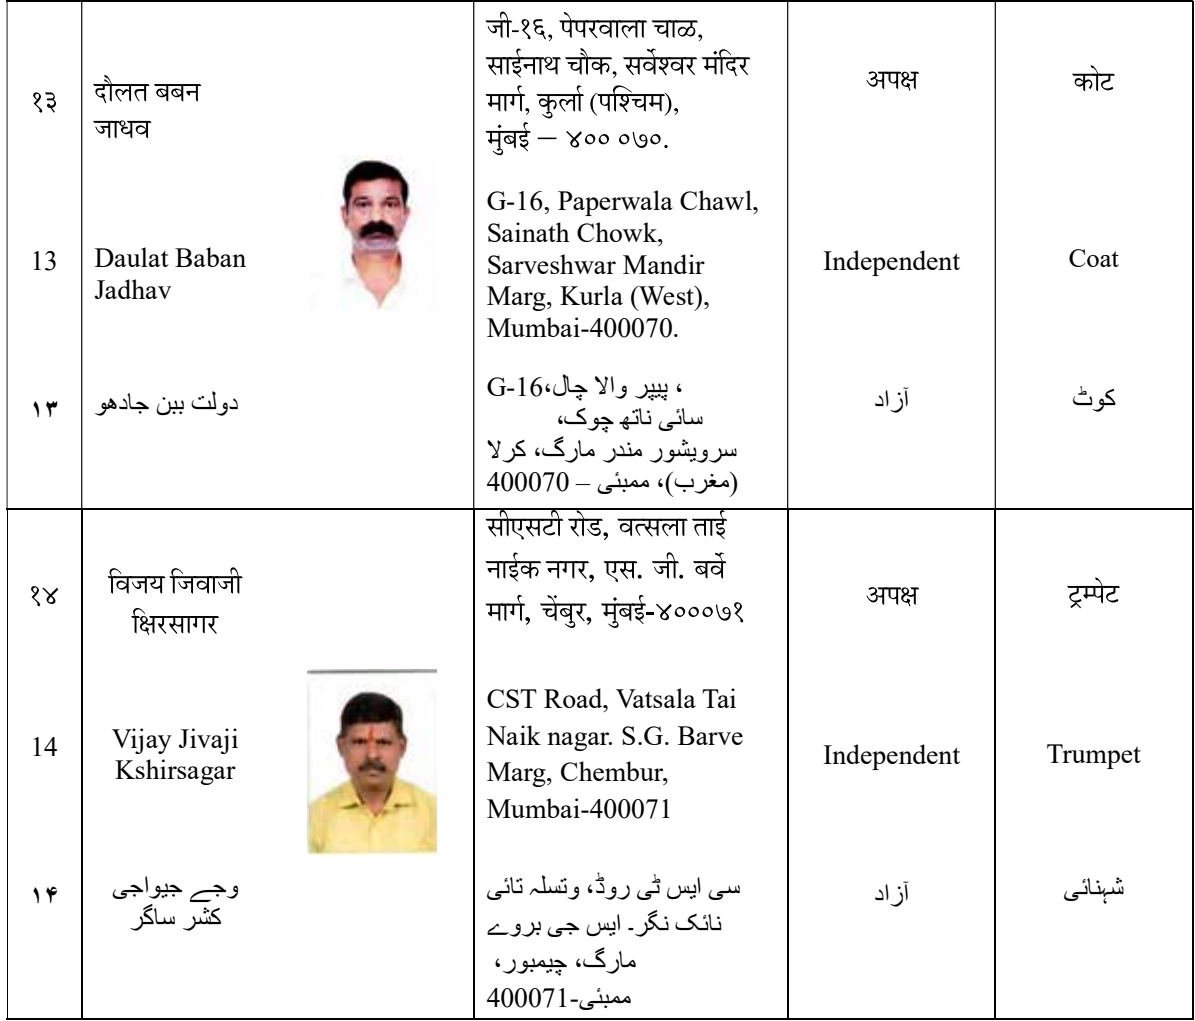 १३
दौलत बबन
जाधव
जी-१६, पेपरवाला चाळ,
साईनाथ चौक, सर्वेश्वर मंदिर
मार्ग, कुर्ला (पश्चिम),
मुंबई – ४०० ०७०.
अपक्ष
कोट
13
Daulat Baban
Jadhav
G-16, Paperwala Chawl,
Sainath Chowk,
Sarveshwar Mandir
Marg, Kurla (West),
Mumbai-400070.
Independent
Coat
۱۳
دولت ببن جادھو
، پیپر والا چال،G-16
سائی ناتھ چوک،
سرویشور مندر مارگ، کرلا
(مغرب)، ممبئی – 400070
آزاد
کوٹ
१४
विजय जिवाजी
क्षिरसागर
सीएसटी रोड, वत्सला ताई
नाईक नगर, एस. जी. बर्वे
मार्ग, चेंबुर, मुंबई-४०००७१
अपक्ष
ट्रम्पेट
14
Vijay Jivaji
Kshirsagar
CST Road, Vatsala Tai
Naik nagar. S.G. Barve
Marg, Chembur,
Mumbai-400071
Independent
Trumpet
۱۴
وجے جیواجی
کشر ساگر
سی ایس ٹی روڈ، وتسلہ تائی
نائک نگر۔ ایس جی بروے
مارگ، چیمبور،
ممبئی-400071
آزاد
شہنائی